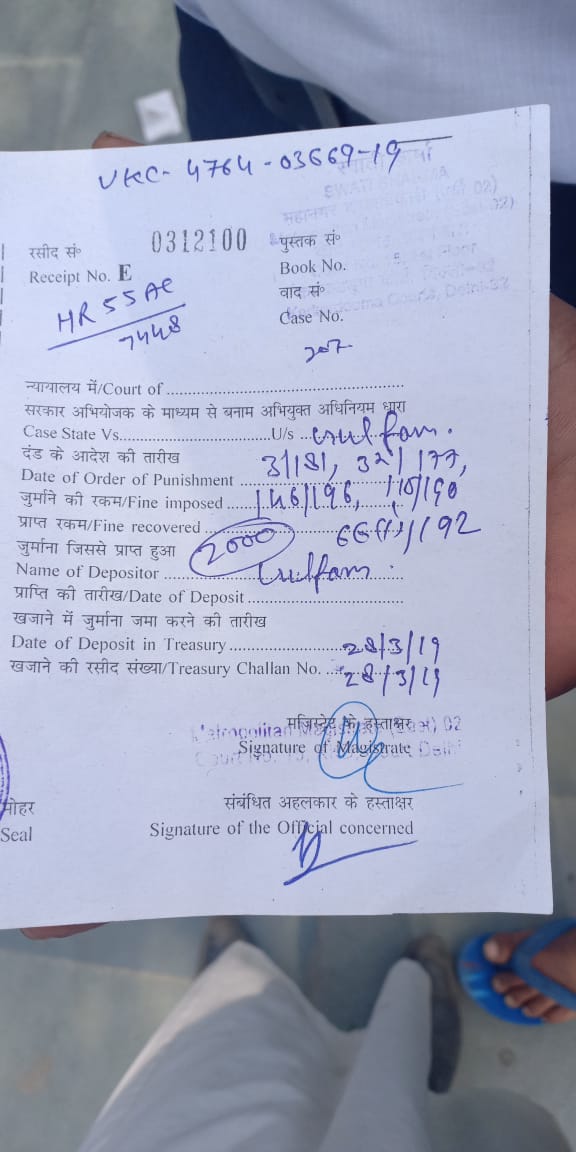 UKC- 4764-03669-19
रसीद सं॰ 0312100 पुस्तक सं॰
Receipt No. E Book No.
HR 55 AC वाद सं॰
7448 Case No.
207
न्यायालय में/Court of
सरकार अभियोजक के माध्यम से बनाम अभियुक्त अधिनियम धारा
Case State Vs. U/s Gulfam.
दंड के आदेश की तारीख 3/181, 32/177,
Date of Order of Punishment
जुर्माने की रकम/Fine imposed 146/196, 110/190
प्राप्त रकम/Fine recovered 66(1)/192
जुर्माना जिससे प्राप्त हुआ 2000
Name of Depositor Gulfam.
प्राप्ति की तारीख/Date of Deposit
खजाने में जुर्माना जमा करने की तारीख
Date of Deposit in Treasury 28/3/19
खजाने की रसीद संख्या/Treasury Challan No. 28/3/19
मजिस्ट्रेट के हस्ताक्षर 02
Signature of Magistrate Delhi
मोहर संबंधित अहलकार के हस्ताक्षर
Seal Signature of the Official concerned